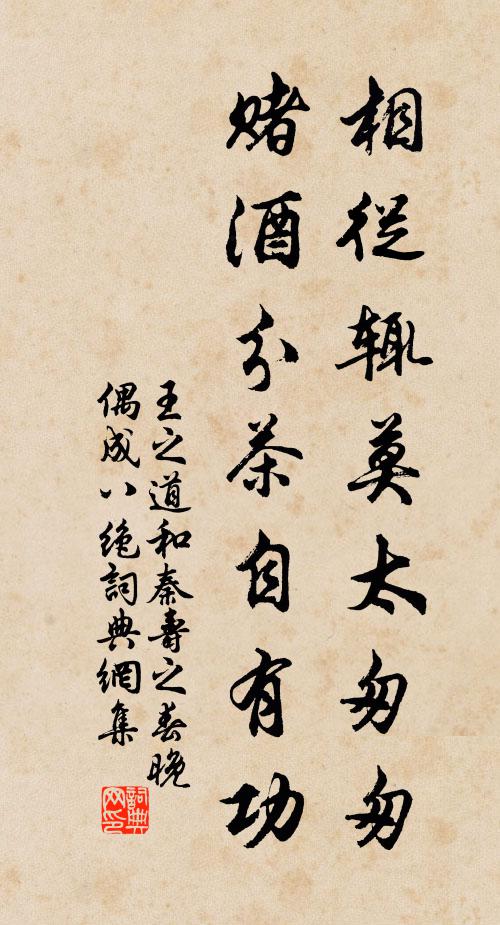 相從輒莫太匆匆
賭酒分茶自有功
王之道和秦壽之春晚
偶成八絕詞典網集
詞典网印